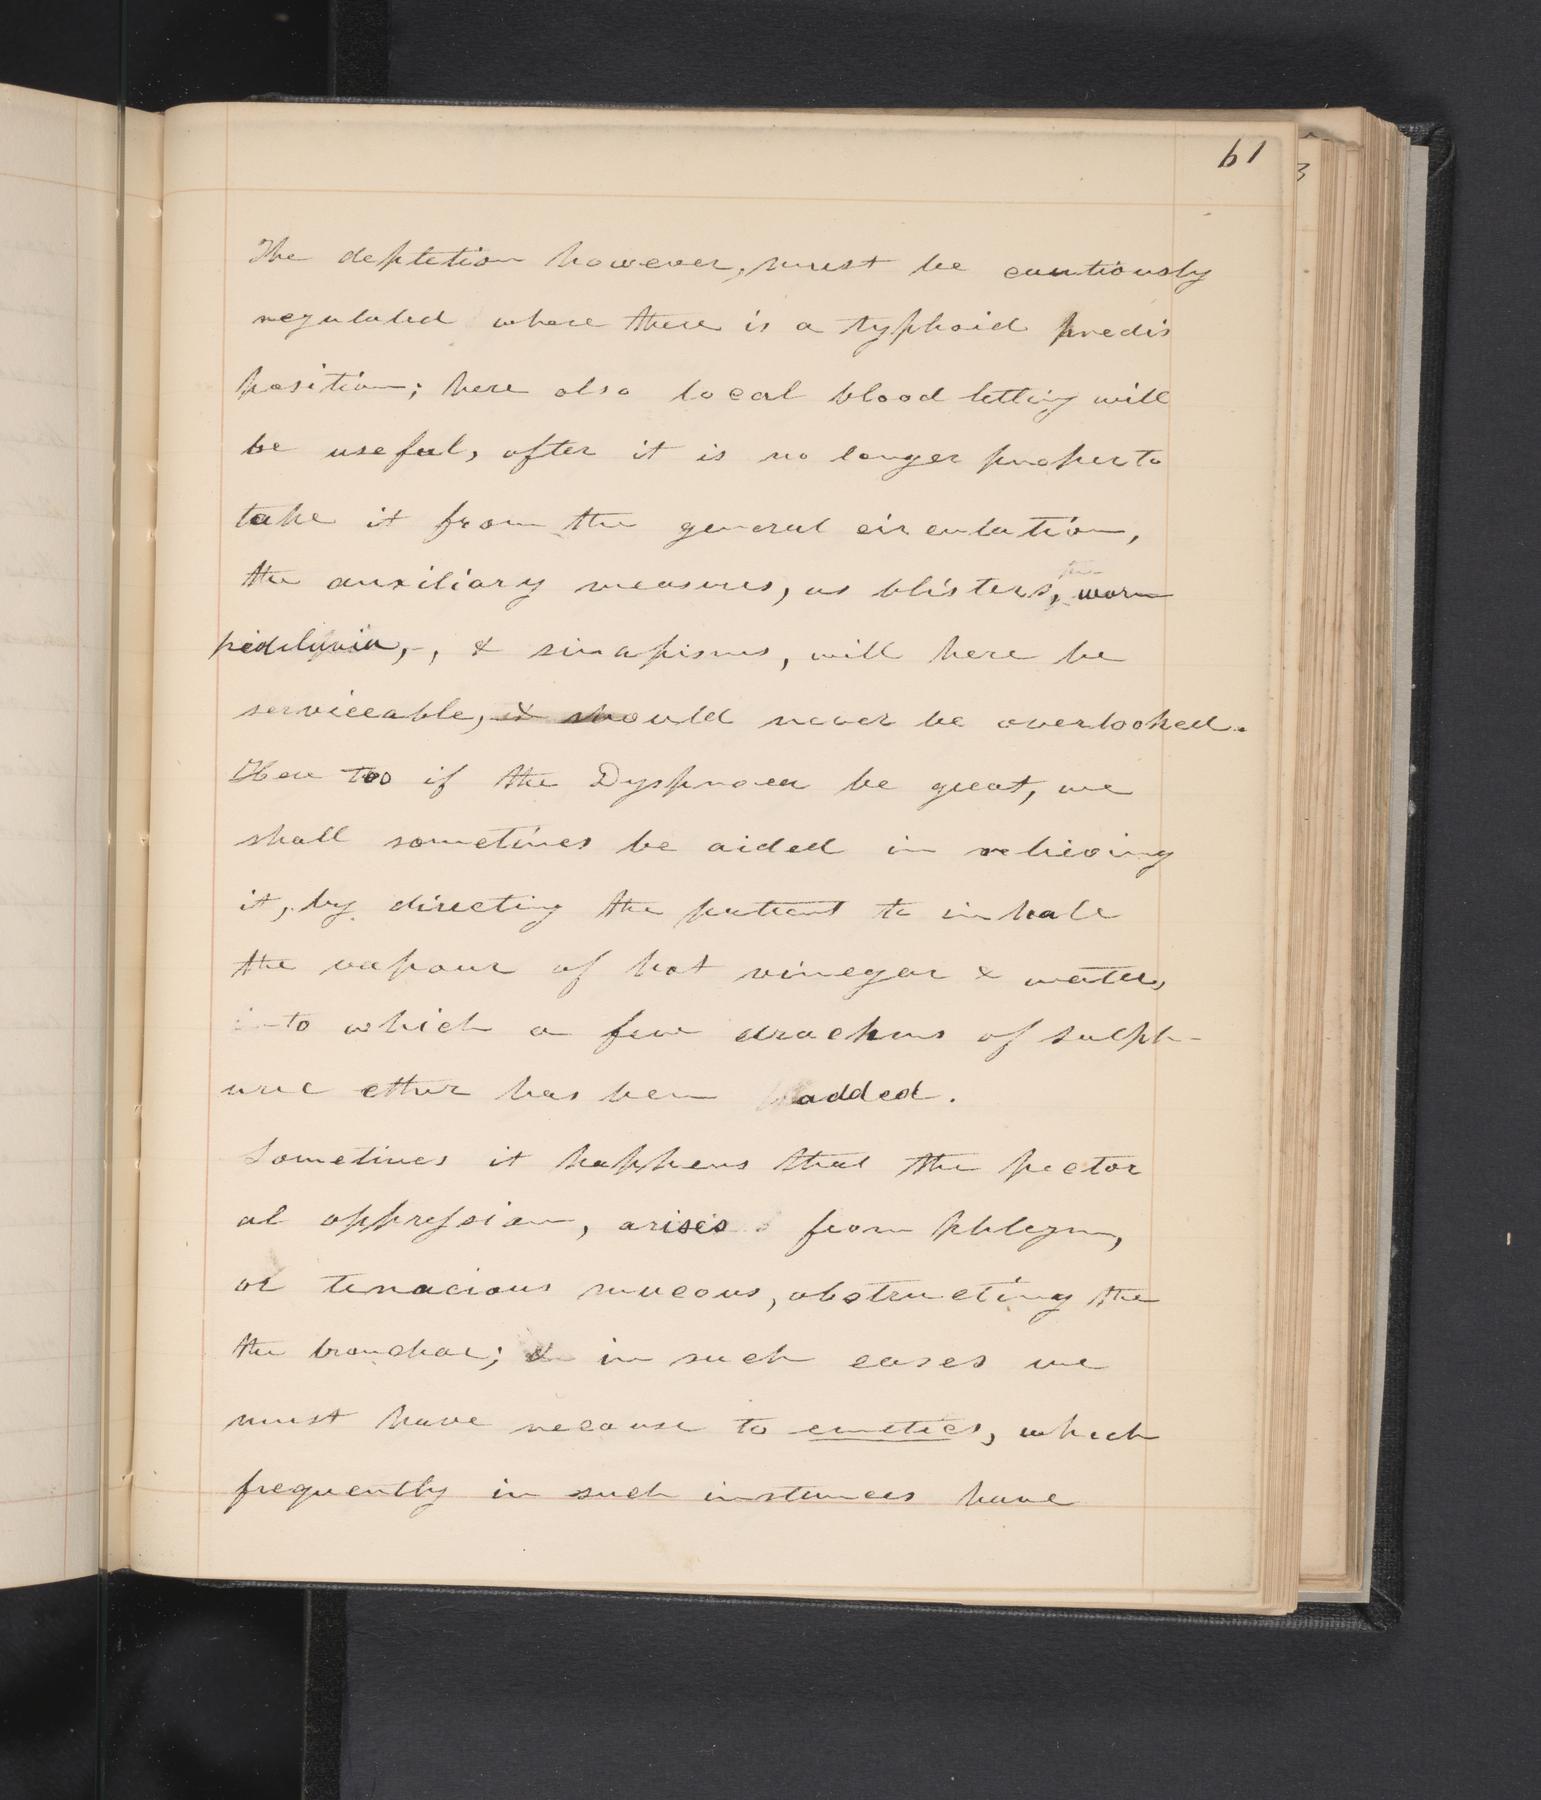 61
3
The depletion however, must be cautiously
regulated where there is a typhoid predis
position; here also local blood letting will
be useful, after it is no longer proper to
take it from the general circulation,
the
the auxiliary measures, as blisters, warm
pediluvia, -, & sinapisms, will here be
serviceable, & should never be overlooked.
Here too if the Dyspnoea be great, we
shall sometimes be aided in relieving
it, by directing the patient to inhale
the vapour of hot vinegar & water,
into which a few drachms of sulph-
uric ether has been added.
Sometimes it happens that the pector
al oppression, arises from phlegm,
or tenacious mucous, obstructing the
the bronchae; & in such cases we
must have recourse to emetics, which
frequently in such instances have